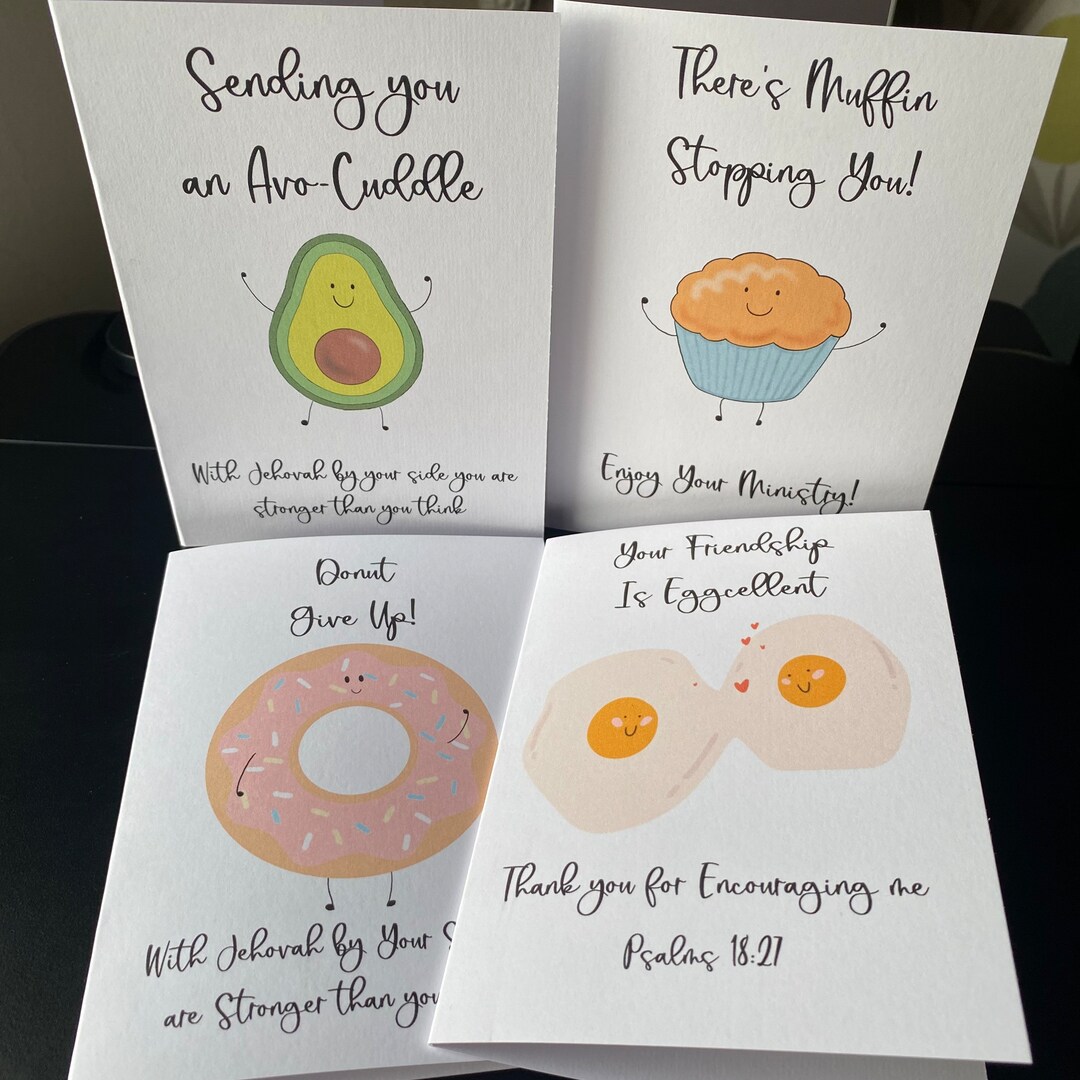 Sending you
an Avo-Cuddle
With Jehovah by your side you are
stronger than you think
There's Muffin
Stopping You!
Enjoy Your Ministry!
Donut
Give Up!
With Jehovah by Your
are Stronger than you
Your Friendship
Is Eggcellent
Thank you for Encouraging me
Psalms 18:27